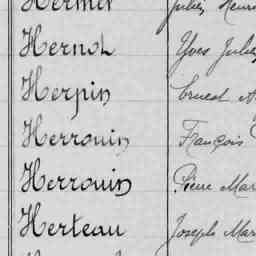 Hernot Yves Julie
Herpin Ernest A
Herrouin François
Herrouin Pierre Mar
Herteau Joseph Mar